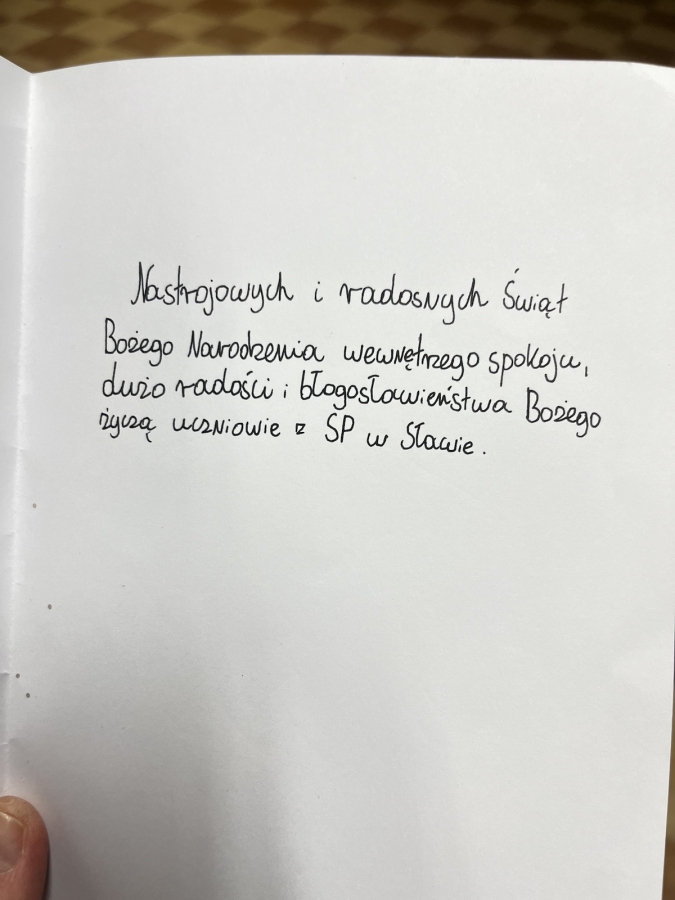 Nastrojowych i radosnych Świąt
Bożego Narodzenia wewnętrzego spokoju,
dużo radości i błogosławieństwa Bożego
życzą uczniowie z SP w Sławie.